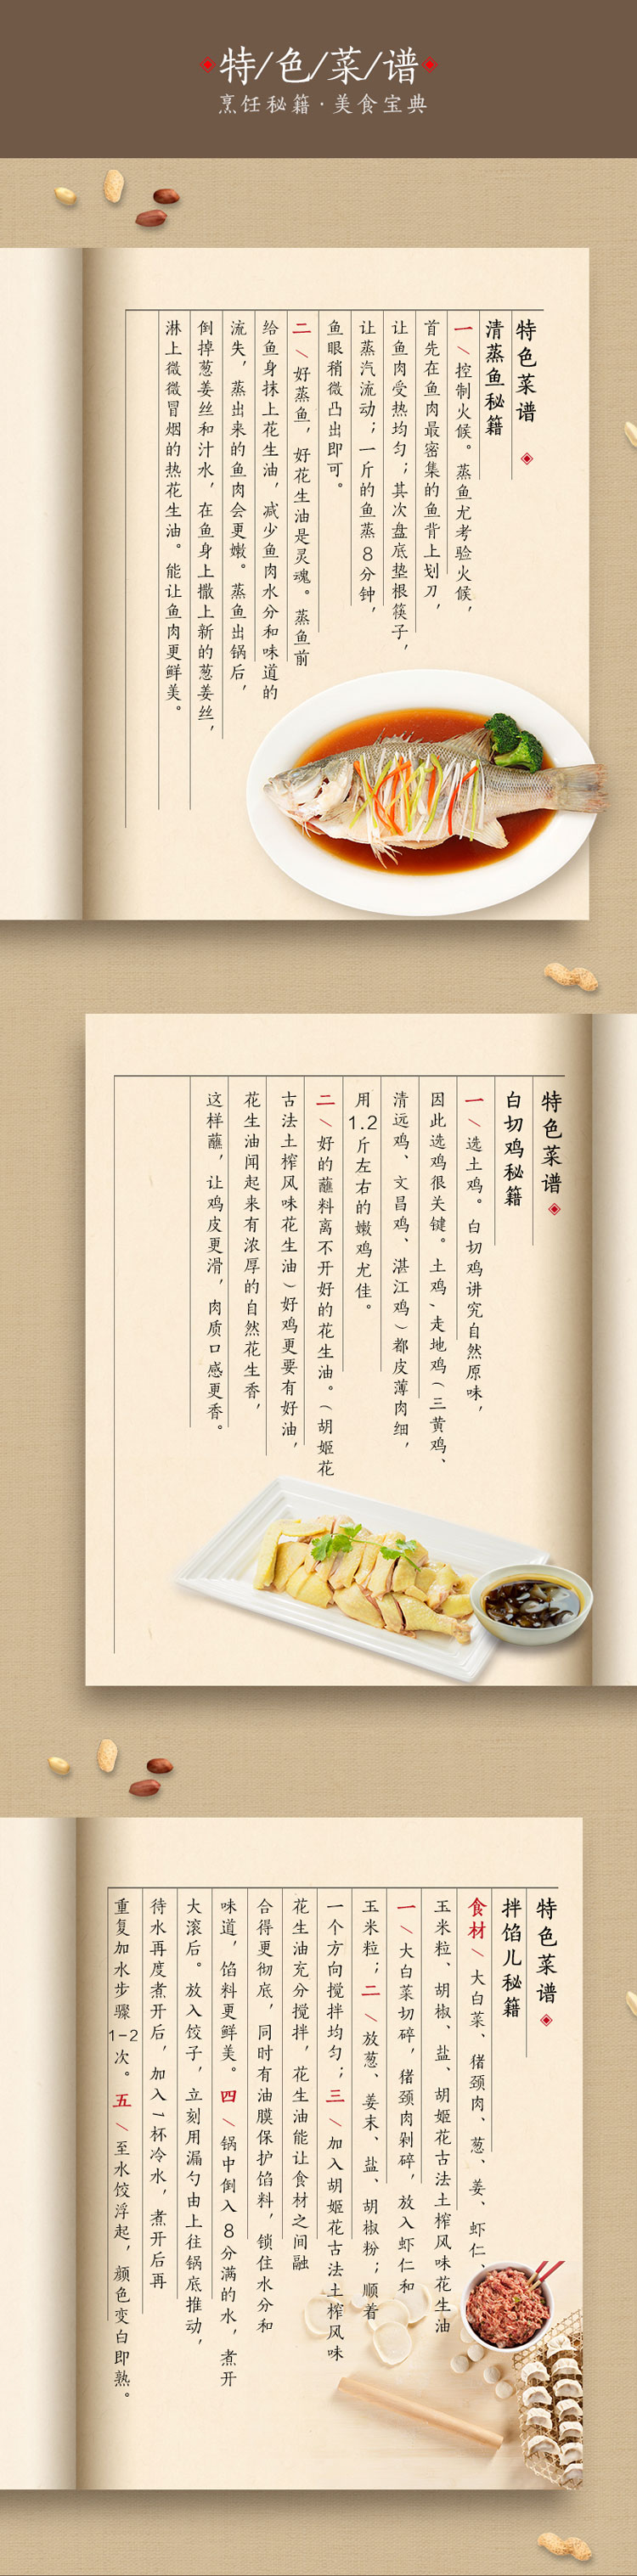 特/色/菜/谱
烹饪秘籍·美食宝典
特色菜谱
清蒸鱼秘籍
一\控制火候。蒸鱼尤考验火候，
首先在鱼肉最密集的鱼背上划刀，
让鱼肉受热均匀；其次盘底垫根筷子，
让蒸汽流动；一斤的鱼蒸8分钟，
鱼眼稍微凸出即可。
二\好蒸鱼，好花生油是灵魂。蒸鱼前
给鱼身抹上花生油，减少鱼肉水分和味道的
流失，蒸出来的鱼肉会更嫩。蒸鱼出锅后，
倒掉葱姜丝和汁水，在鱼身上撒上新的葱姜丝，
淋上微微冒烟的热花生油。能让鱼肉更鲜美。
特色菜谱
白切鸡秘籍
一\选土鸡。白切鸡讲究自然原味，
因此选鸡很关键。土鸡、走地鸡(三黄鸡、
清远鸡、文昌鸡、湛江鸡)都皮薄肉细，
用1.2斤左右的嫩鸡尤佳。
二\好的蘸料离不开好的花生油。(胡姬花
古法土榨风味花生油)好鸡更要有好油，
花生油闻起来有浓厚的自然花生香，
这样蘸，让鸡皮更滑，肉质口感更香。
特色菜谱
拌馅儿秘籍
食材\大白菜、猪颈肉、葱、姜、虾仁、
玉米粒、胡椒、盐、胡姬花古法土榨风味花生油
一\大白菜切碎，猪颈肉剁碎，放入虾仁和
玉米粒；二\放葱、姜末、盐、胡椒粉；顺着
一个方向搅拌均匀；三\加入胡姬花古法土榨风味
花生油充分搅拌，花生油能让食材之间融
合得更彻底，同时有油膜保护馅料，锁住水分和
味道，馅料更鲜美。四\锅中倒入8分满的水，煮开
大滚后。放入饺子，立刻用漏勺由上往锅底推动，
待水再度煮开后，加入1杯冷水，煮开后再
重复加水步骤1-2次。五\至水饺浮起，颜色变白即熟。